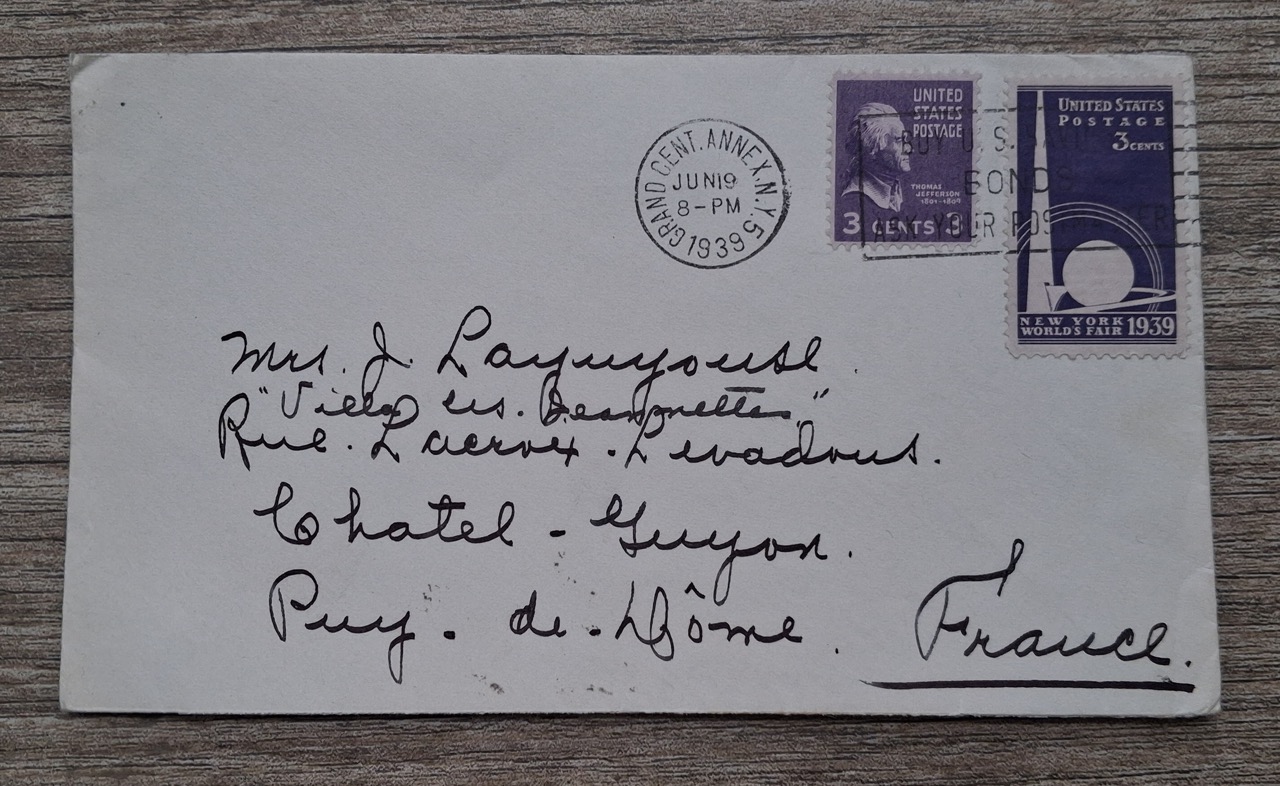 GRAND CENT. ANNEX. N.Y. 5
JUN 19
8-PM
1939
UNITED
STATES
POSTAGE
THOMAS
JEFFERSON
1801-1809
3 CENTS 3
BUY U.S.
BONDS
ASK YOUR POSTMASTER
UNITED STATES
POSTAGE
3 CENTS
NEW YORK
WORLD'S FAIR 1939
Mrs. J.
"Villa les
Rue. Lacroix.
Chatel-Guyon.
Puy. de. Dôme.
France.